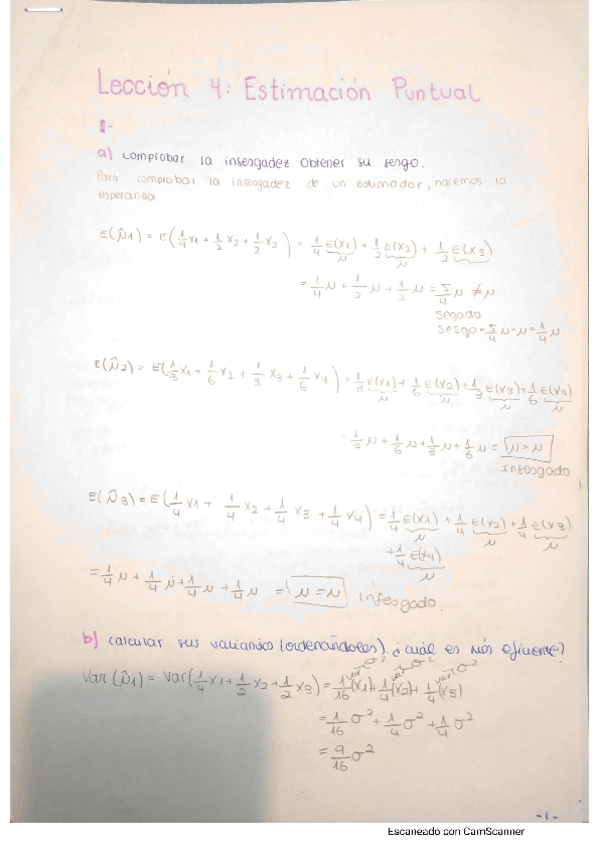 Lección 4: Estimación Puntual
1-
a) Comprobar la insesgadez Obtener su sesgo.
Para comprobar la insesgadez de un estimador, hacemos la
esperanza
E(μ̂1) = E(1/4 x1 + 1/2 x2 + 1/2 x3) = 1/4 E(x1) + 1/2 E(x2) + 1/2 E(x3)
μ μ μ
= 1/4 μ + 1/2 μ + 1/2 μ = 5/4 μ ≠ μ
segado
sesgo = 5/4 μ - μ = 1/4 μ
E(μ̂2) = E(1/3 x1 + 1/6 x2 + 1/3 x3 + 1/6 x4) = 1/3 E(x1) + 1/6 E(x2) + 1/3 E(x3) + 1/6 E(x4)
μ μ μ μ
= 1/3 μ + 1/6 μ + 1/3 μ + 1/6 μ = μ = μ
insesgado
E(μ̂3) = E(1/4 x1 + 1/4 x2 + 1/4 x3 + 1/4 x4) = 1/4 E(x1) + 1/4 E(x2) + 1/4 E(x3)
μ μ μ
+ 1/4 E(x4)
μ
= 1/4 μ + 1/4 μ + 1/4 μ + 1/4 μ = μ = μ insesgado.
b) calcular sus varianzas (ordenándolas). ¿cuál es más eficiente?
Var(μ̂1) = Var(1/4 x1 + 1/2 x2 + 1/2 x3) = 1/16 var(x1) + 1/4 var(x2) + 1/4 var(x3)
σ² σ² σ²
= 1/16 σ² + 1/4 σ² + 1/4 σ²
= 9/16 σ²
-1-
Escaneado con CamScanner